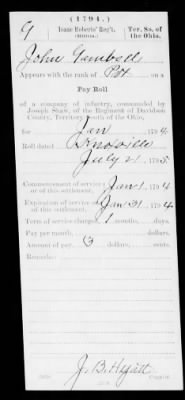 (1794.)
G
Isaac Roberts' Reg't.
Ter. So. of the Ohio.
John Gambell
Appears with the rank of Pvt on a
Pay Roll
of a company of infantry, commanded by
Joseph Shaw, of the Regiment of Davidson
County, Territory South of the Ohio,
for Jan , 1794.
Roll dated Knoxville
July 21, 1795
Commencement of service or of this settlement, Jan 1, 1794
Expiration of service or of this settlement, Jan 31, 1794
Term of service charged, 1 months, days.
Pay per month, dollars, cents.
Amount of pay, 3 dollars, cents.
Remarks:
J. B. Hyatt
Copyist.